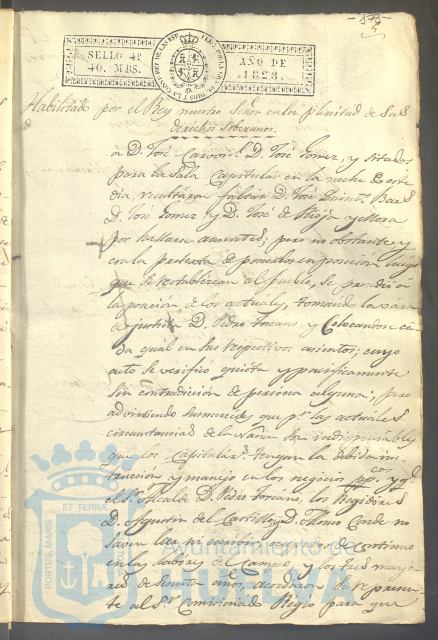 -573-
SELLO 4º AÑO DE
40. MRS. 1823.
Habilitado por el Rey nuestro Señor en la plenitud de sus
derechos soberanos.
á D. José Carron. D. José Gomez, y citados
para la Sala Capitular en la noche de este
dia, resultaron faltar D. José Quint. Baez
D. José Gomez y D. José de Rioja y Mora
por hallarse ausentes; pero no obstante y
con la protesta de ponerlos en posecion luego
que se restablezcan al pueblo, se procedió á
la posecion de los actuales, tomando la vara
de justicia D. Pedro Toscano y colocandose ca
da qual en sus respectivos asientos; cuyo
acto se verificó quieta y pacificamente
sin contradicion de persona alguna, pero
advirtiendo sus mercedes que pr. las actuales
circunstancias de la villa era indispensable
que los capitular.s tengan la debida ins
truccion y manejo en los negocios pp.cos y q.e
el S.r Alcalde D. Pedro Toscano, los Regidores
D. Agustin del Castillo y D. Alonso Conde no
saven leer ni escrivir, de continuo
en las labores de Campo, y los tres mayo
res de setenta años, acordaron se represen
te al S.r Comisionado Regio para que
PORTUS MARIS ET TERRAE
Ayuntamiento de
HUELVA